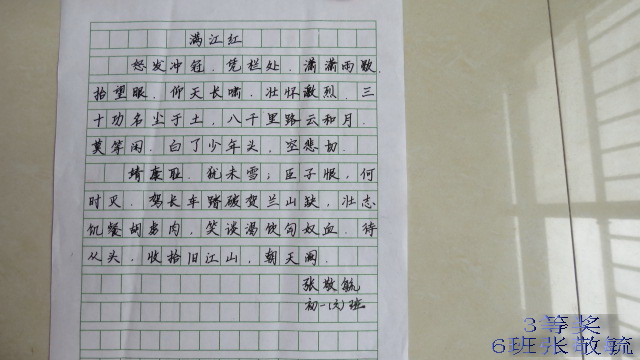 满江红
怒发冲冠,凭栏处,潇潇雨歇,
抬望眼,仰天长啸,壮怀激烈,三
十功名尘于土,八千里路云和月.
莫等闲,白了少年头,空悲切.
靖康耻,犹未雪;臣子恨,何
时灭,驾长车踏破贺兰山缺,壮志
饥餐胡虏肉,笑谈渴饮匈奴血,待
从头,收拾旧江山,朝天阙.
张敬毓
初一(六)班
3等奖
6班张敬毓